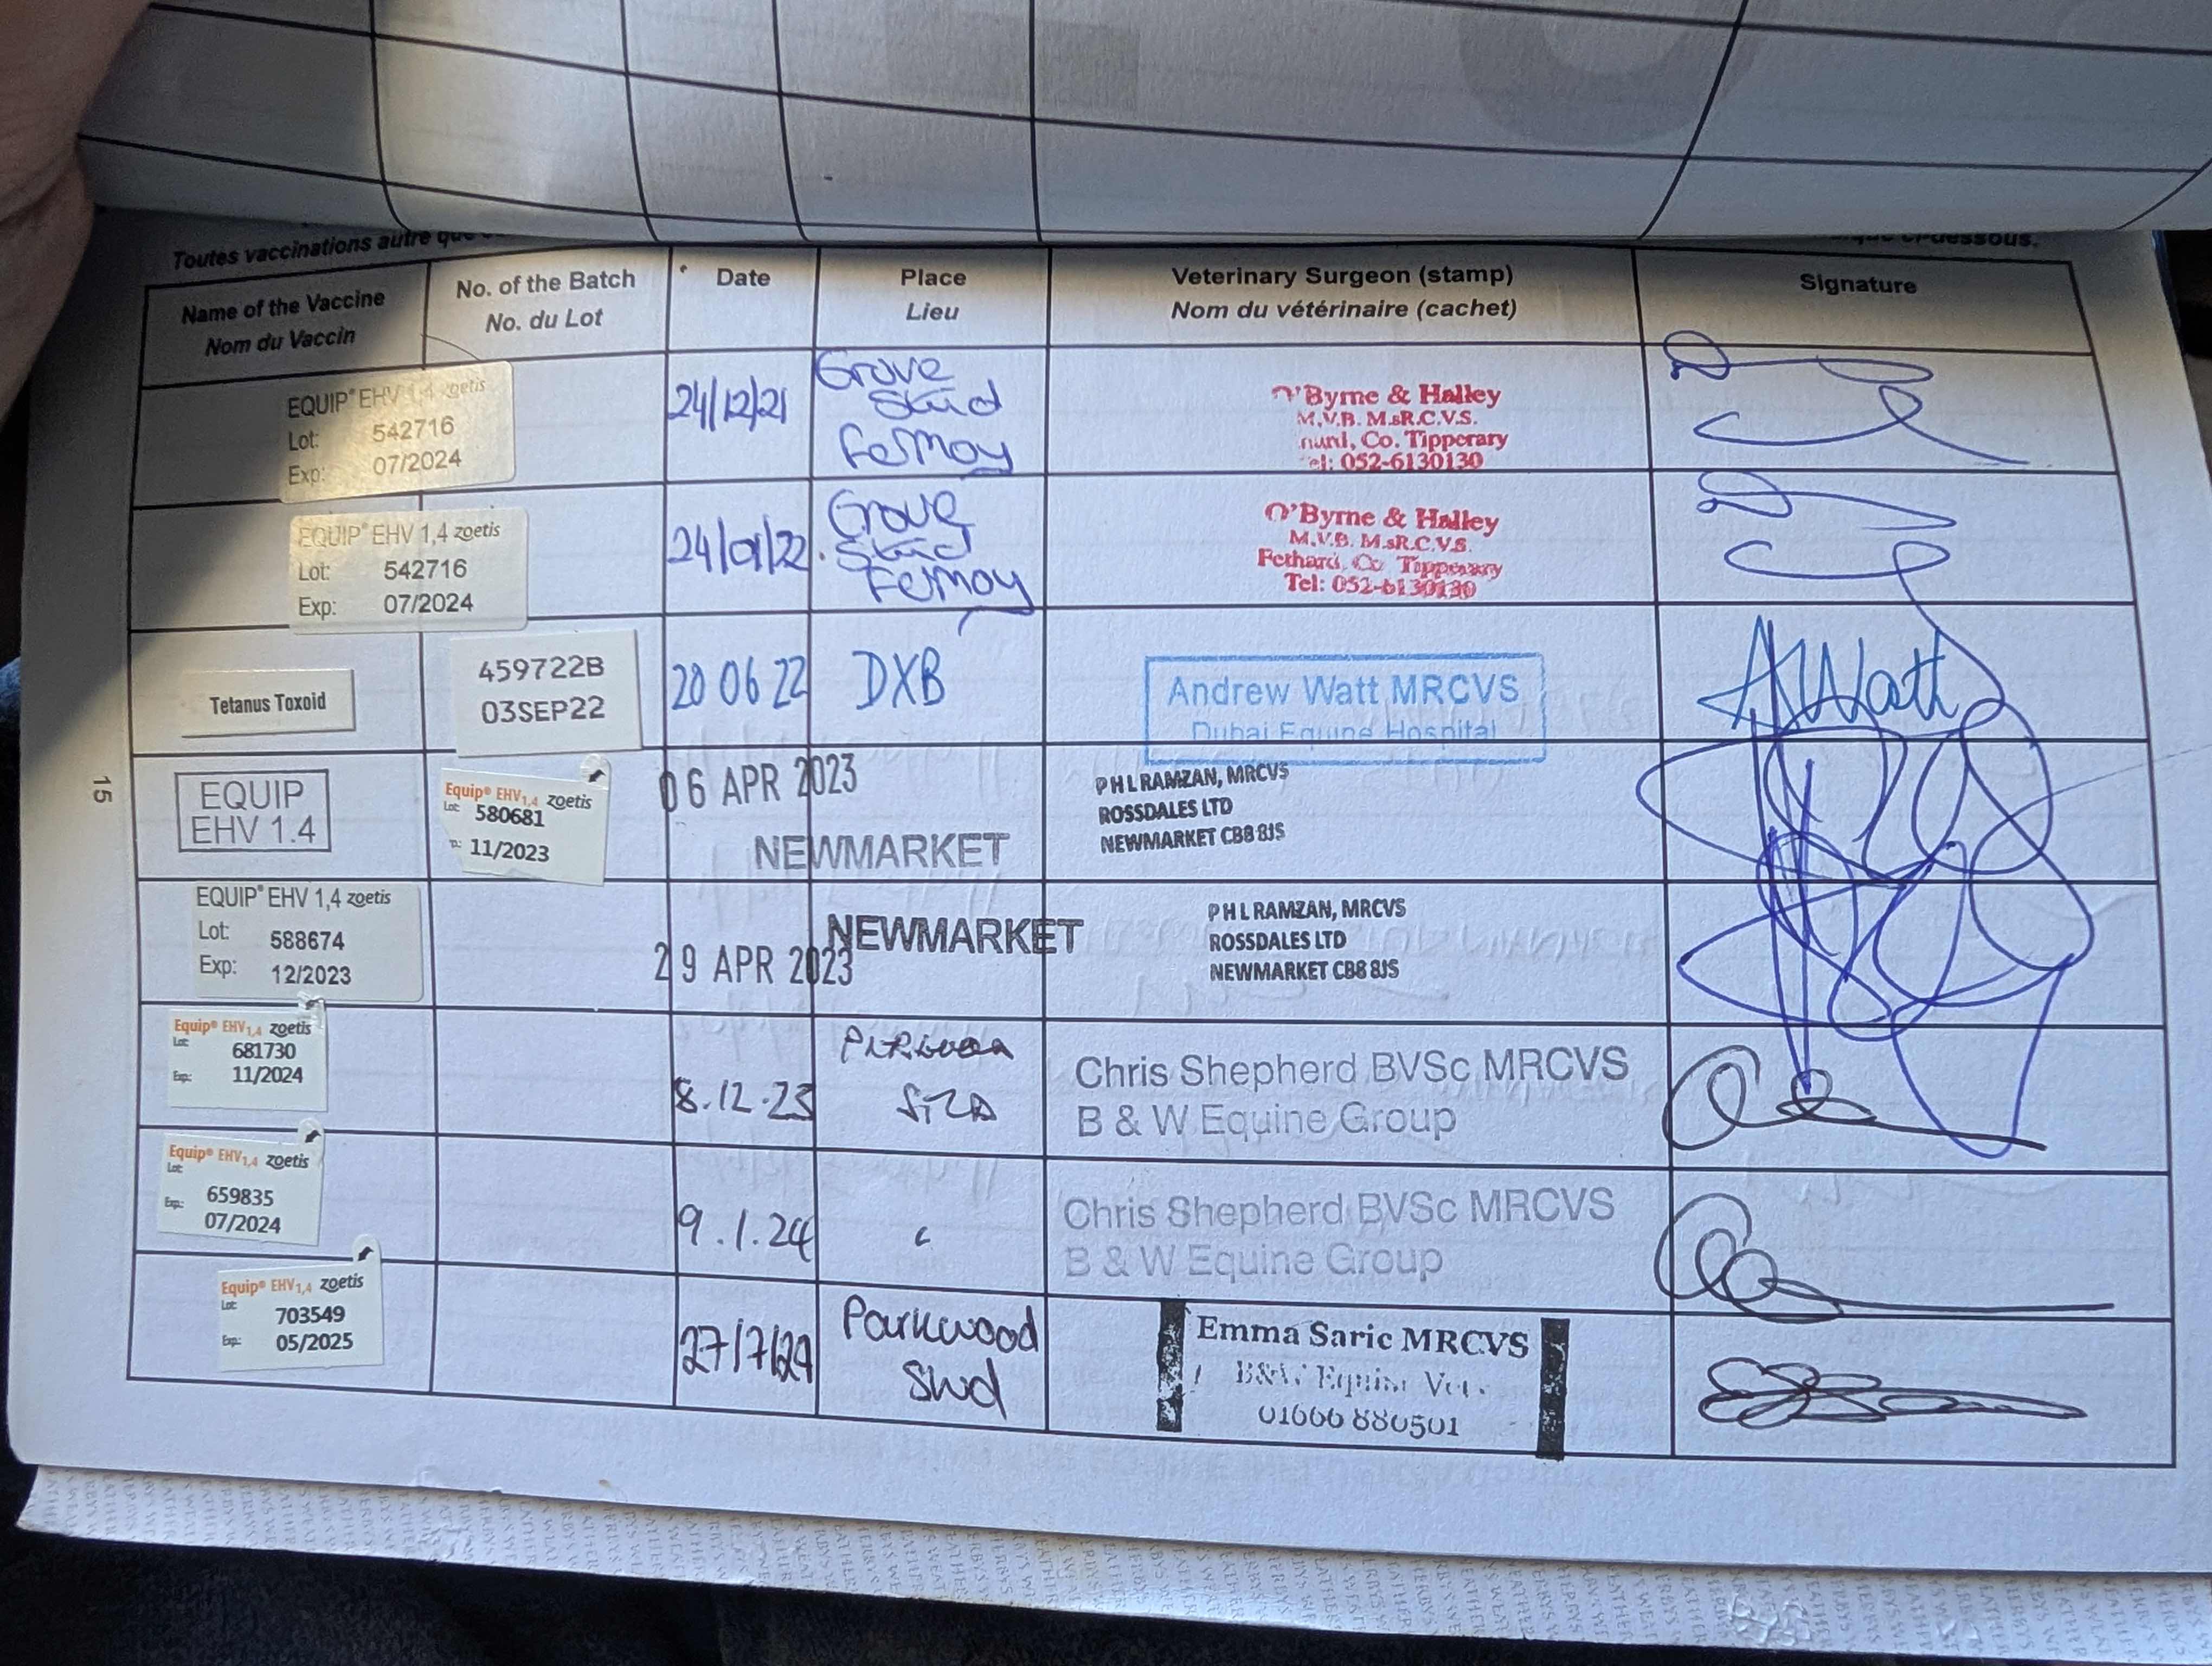 Toutes vaccinations autre que
dessous.
Name of the Vaccine
Nom du Vaccin
No. of the Batch
No. du Lot
Date
Place
Lieu
Veterinary Surgeon (stamp)
Nom du vétérinaire (cachet)
Signature
EQUIP® EHV 1,4 zoetis
Lot: 542716
Exp: 07/2024
24/12/21
Grove
Stud
Fermoy
O'Byrne & Halley
M.V.B. M.sR.C.V.S.
Co. Tipperary
Tel: 052-6130130
EQUIP® EHV 1,4 zoetis
Lot: 542716
Exp: 07/2024
24/01/22
Grove
Stud
Fermoy
O'Byrne & Halley
M.V.B. M.sR.C.V.S.
Fethard, Co Tipperary
Tel: 052-6130130
Tetanus Toxoid
459722B
03SEP22
20 06 22
DXB
Andrew Watt MRCVS
Dubai Equine Hospital
A Watt
15
EQUIP
EHV 1.4
Equip® EHV1,4 zoetis
Lot: 580681
11/2023
06 APR 2023
NEWMARKET
P H L RAMZAN, MRCVS
ROSSDALES LTD
NEWMARKET CB8 8JS
EQUIP® EHV 1,4 zoetis
Lot: 588674
Exp: 12/2023
29 APR 2023
NEWMARKET
P H L RAMZAN, MRCVS
ROSSDALES LTD
NEWMARKET CB8 8JS
Equip® EHV1,4 zoetis
Lot: 681730
Exp: 11/2024
8.12.23
Chris Shepherd BVSc MRCVS
B & W Equine Group
Equip® EHV1,4 zoetis
Lot: 659835
Exp: 07/2024
9.1.24
Chris Shepherd BVSc MRCVS
B & W Equine Group
Equip® EHV1,4 zoetis
Lot: 703549
Exp: 05/2025
27/7/24
Parkwood
Stud
Emma Saric MRCVS
B&W Equine Vets
01666 880501